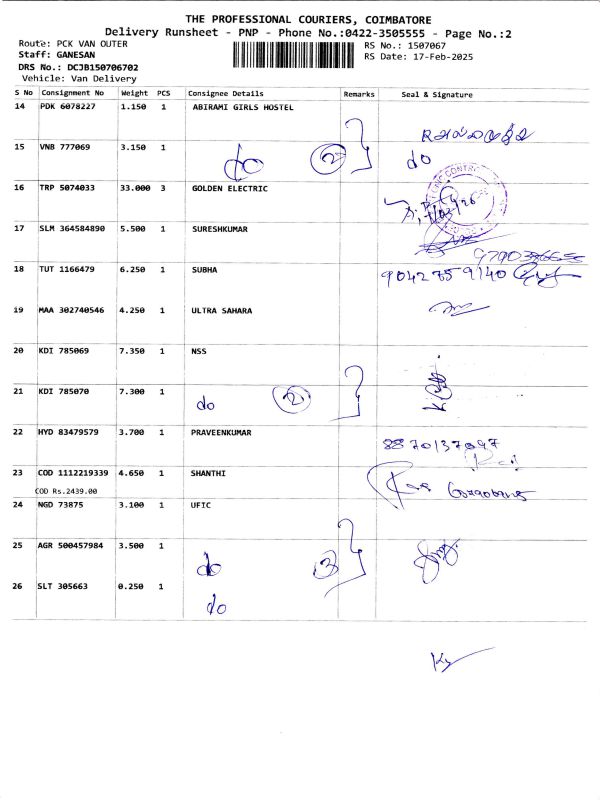 THE PROFESSIONAL COURIERS, COIMBATORE
Delivery Runsheet - PNP - Phone No.:0422-3505555 - Page No.:2
Route: PCK VAN OUTER
RS No.: 1507067
Staff: GANESAN
RS Date: 17-Feb-2025
DRS No.: DCJB150706702
Vehicle: Van Delivery
S No Consignment No Weight PCS Consignee Details Remarks Seal & Signature
14 PDK 6078227 1.150 1 ABIRAMI GIRLS HOSTEL
15 VNB 777069 3.150 1
do 2 do
16 TRP 5074033 33.000 3 GOLDEN ELECTRIC
17 SLM 364584890 5.500 1 SURESHKUMAR
18 TUT 1166479 6.250 1 SUBHA
9042759140
19 MAA 302740546 4.250 1 ULTRA SAHARA
20 KDI 785069 7.350 1 NSS
21 KDI 785070 7.300 1
do 2
22 HYD 83479579 3.700 1 PRAVEENKUMAR
8870137097
23 COD 1112219339 4.650 1 SHANTHI
COD Rs.2439.00
24 NGD 73875 3.100 1 UFIC
25 AGR 500457984 3.500 1
do 3
26 SLT 305663 0.250 1
do